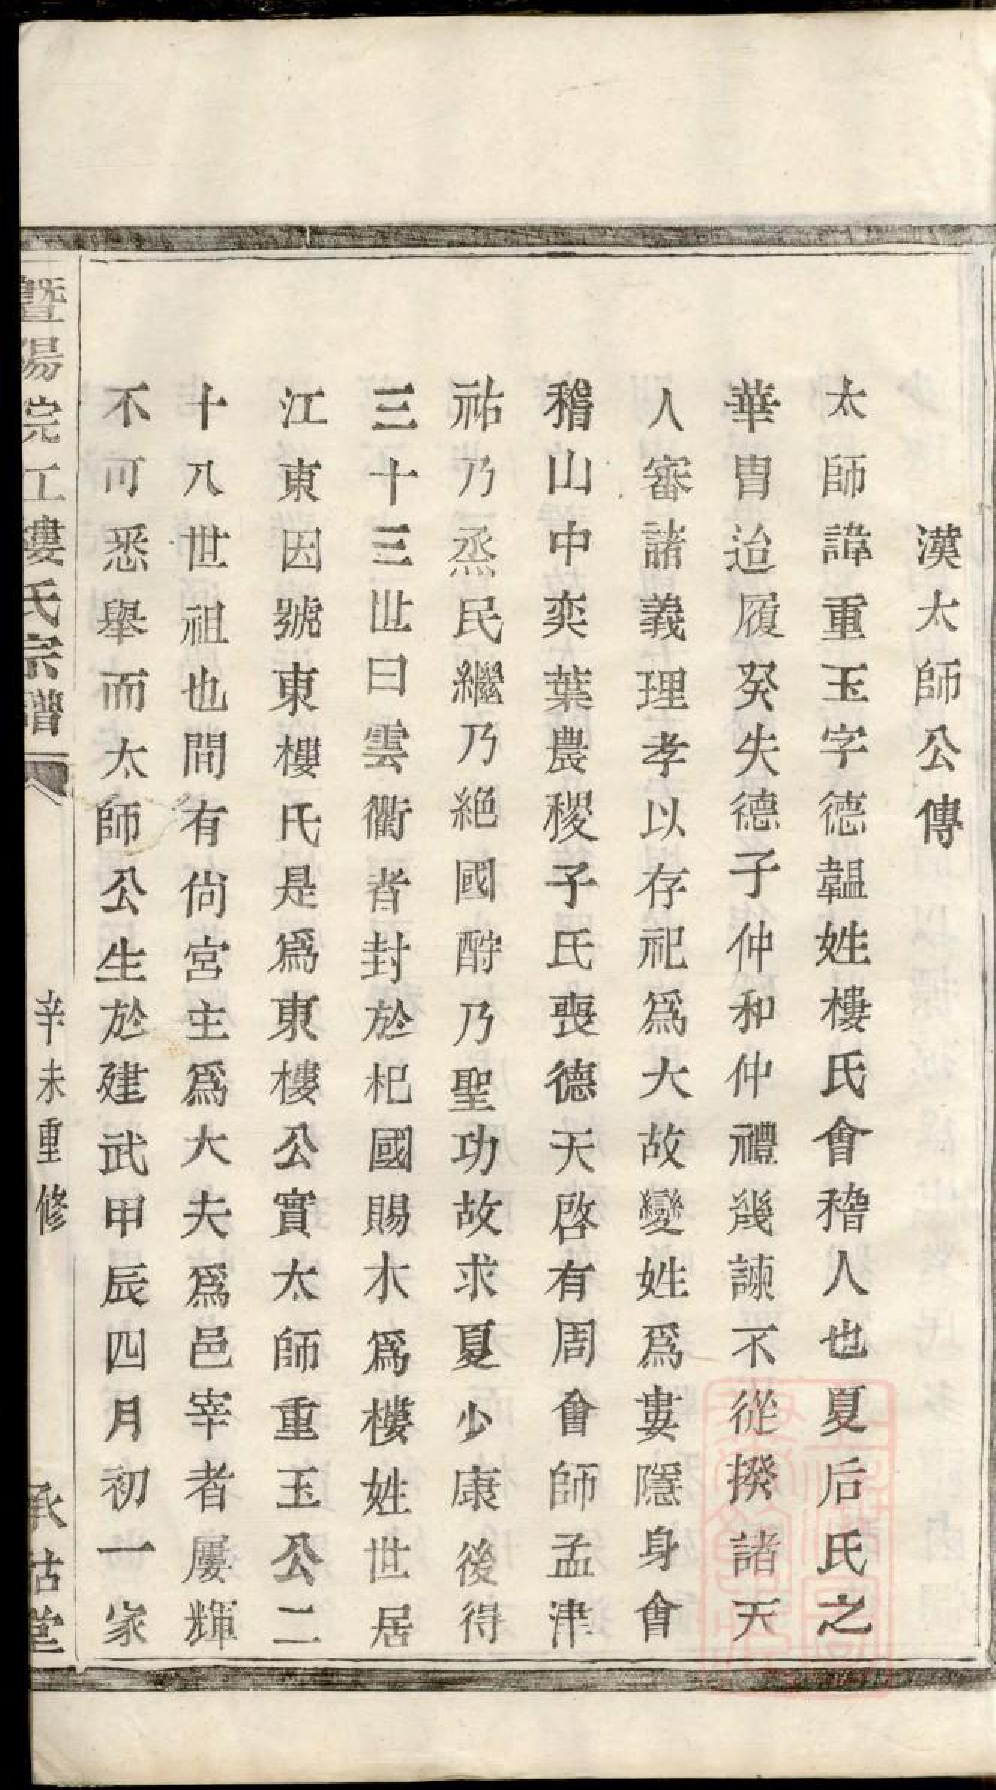 漢太師公傳
太師諱重玉字德韞姓樓氏會稽人也夏后氏之
華胄迨履癸失德子仲和仲禮幾諫不從揆諸天
人審諸義理孝以存祀爲大故變姓爲婁隱身會
稽山中奕葉農稷子氏喪德天啓有周會師孟津
祐乃烝民繼乃絕國酧乃聖功故求夏少康後得
三十三世曰雲衢者封於杞國賜木爲樓姓世居
江東因號東樓氏是爲東樓公實太師重玉公二
十八世祖也間有尙宮主爲大夫爲邑宰者屢輝
不可悉舉而太師公生於建武甲辰四月初一家
暨陽浣江婁氏宗譜 辛未重修 承祜堂